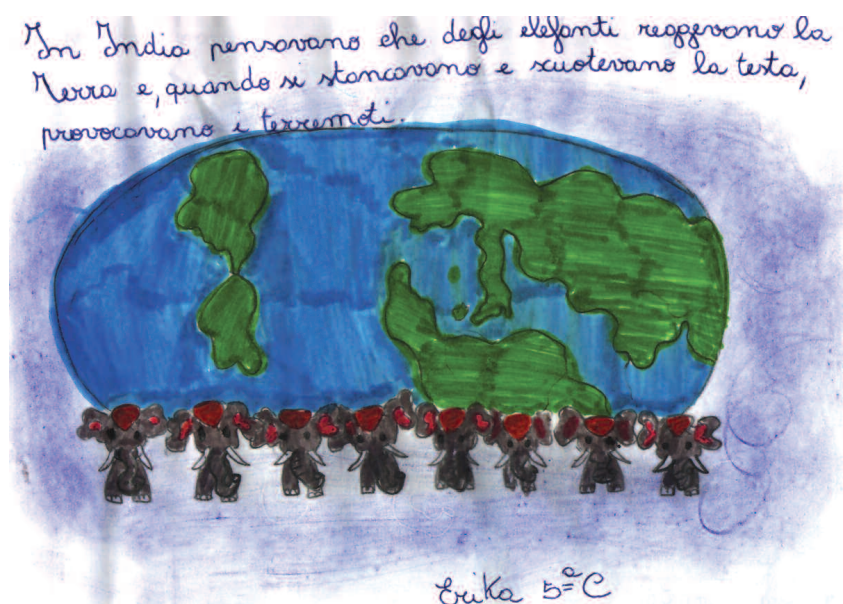 In India pensavano che degli elefanti reggevano la
Terra e, quando si stancavano e scuotevano la testa,
provocavano i terremoti.
Erika 5ª C